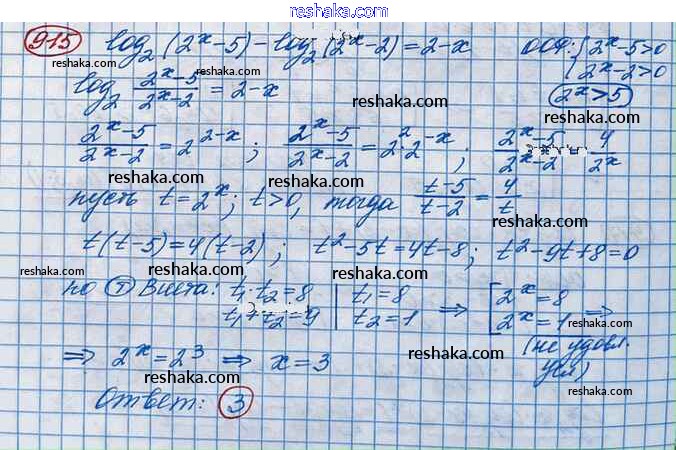 reshaka.com
915 log₂(2ˣ-5)-log₂(2ˣ-2)=2-x ООФ: {2ˣ-5>0
reshaka.com
log₂ (2ˣ-5)/(2ˣ-2) = 2-x {2ˣ-2>0
reshaka.com reshaka.com
2ˣ>5
reshaka.com
(2ˣ-5)/(2ˣ-2) = 2²⁻ˣ; (2ˣ-5)/(2ˣ-2) = 2²·2⁻ˣ; (2ˣ-5)/(2ˣ-2) = 4/2ˣ
reshaka.com reshaka.com
пусть t=2ˣ; t>0, тогда (t-5)/(t-2) = 4/t
reshaka.com
t(t-5)=4(t-2); t²-5t=4t-8; t²-9t+8=0
reshaka.com reshaka.com reshaka.com
по Т Виета: t₁·t₂=8 | t₁=8 ⇒ [2ˣ=8
reshaka.com
t₁+t₂=9 | t₂=1 [2ˣ=1 ⇒
reshaka.com
(не удовл. усл)
reshaka.com
⇒ 2ˣ=2³ ⇒ x=3
reshaka.com reshaka.com
Ответ: 3
reshaka.com reshaka.com